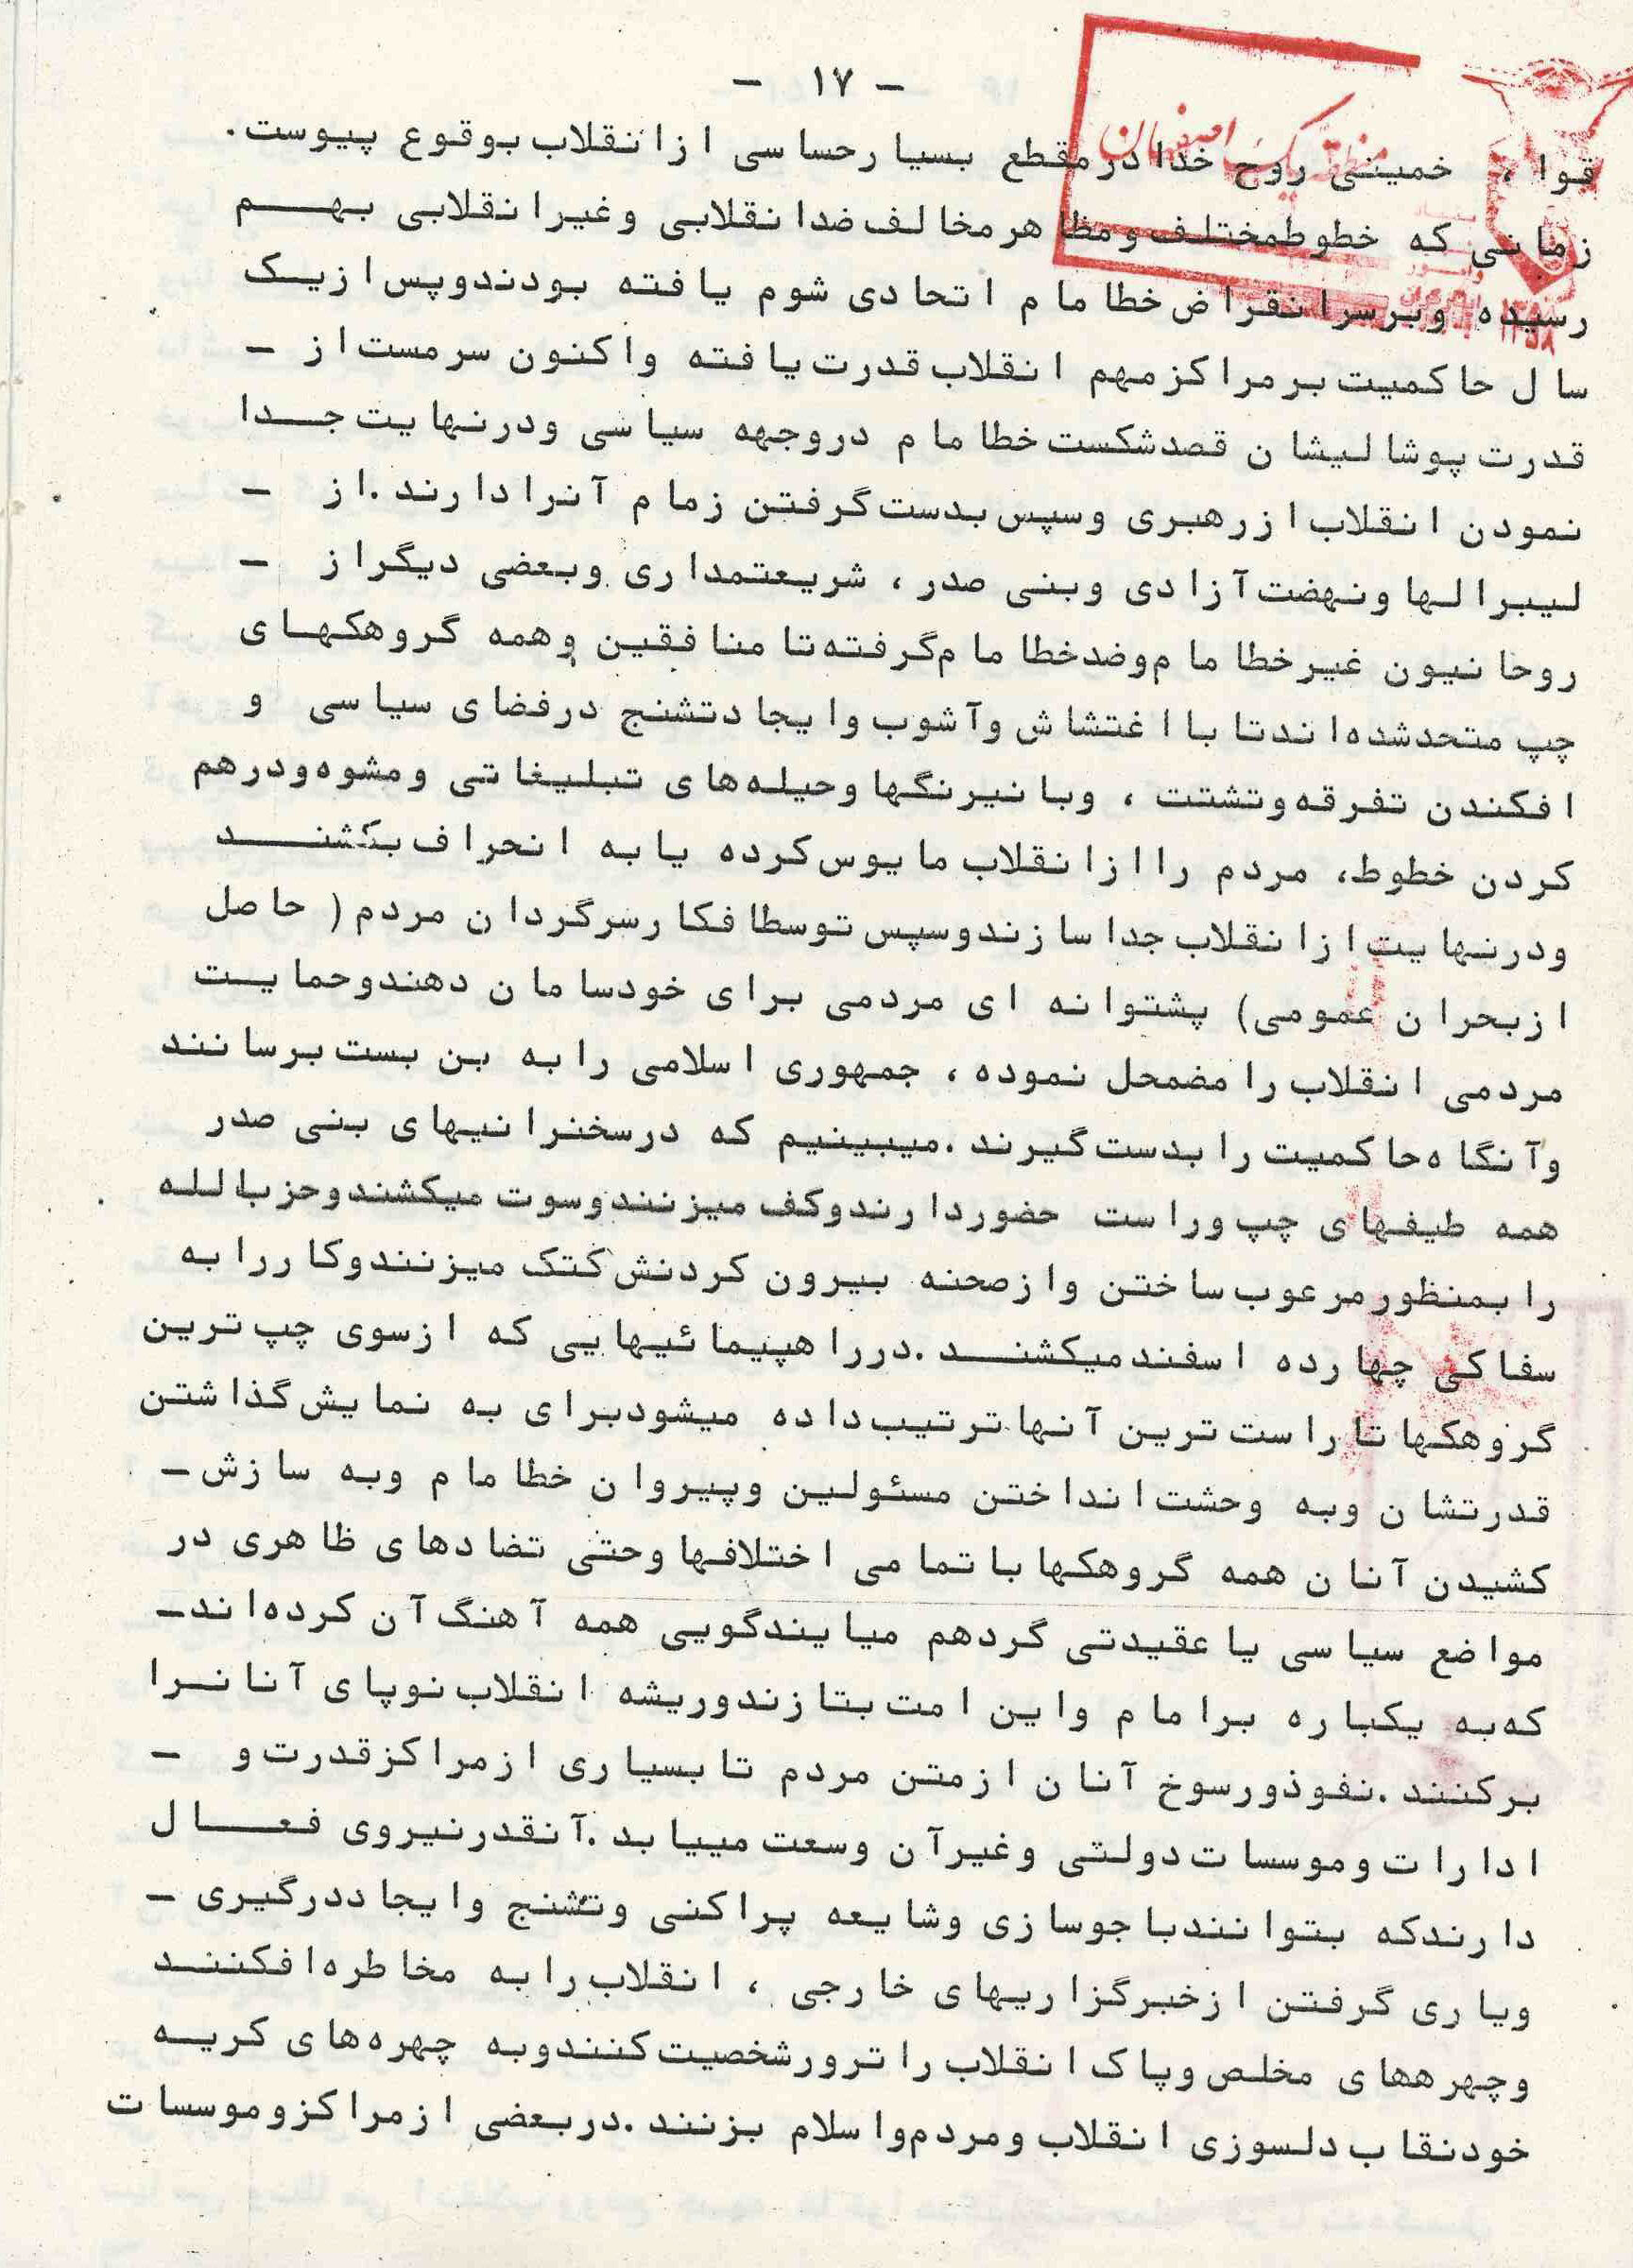 - ۱۷ -
منطقه یک اصفهان
قوا ، خمینی روح خدا در مقطع بسیار حساسی از انقلاب بوقوع پیوست.
زمانی که خطوط مختلف و مظاهر مخالف ضد انقلابی و غیر انقلابی بهم
رسیده و بر سر انقراض خط امام اتحادی شوم یافته بودند و پس از یک
سال حاکمیت بر مراکز مهم انقلاب قدرت یافته و اکنون سرمست از -
قدرت پوشالیشان قصد شکست خط امام در وجهه سیاسی و در نهایت جدا
نمودن انقلاب از رهبری و سپس بدست گرفتن زمام آنرا دارند. از -
لیبرالها و نهضت آزادی و بنی صدر ، شریعتمداری و بعضی دیگر از -
روحانیون غیر خط امام و ضد خط امام گرفته تا منافقین و همه گروهکهای
چپ متحد شده اند تا با اغتشاش و آشوب و ایجاد تشنج در فضای سیاسی و
افکندن تفرقه و تشتت ، و با نیرنگها و حیله های تبلیغاتی و مشوه و درهم
کردن خطوط، مردم را از انقلاب مایوس کرده یا به انحراف بکشند
و در نهایت از انقلاب جدا سازند و سپس توسط افکار سرگردان مردم ( حاصل
از بحران عمومی) پشتوانه ای مردمی برای خود سامان دهند و حمایت
مردمی انقلاب را مضمحل نموده ، جمهوری اسلامی را به بن بست برسانند
و آنگاه حاکمیت را بدست گیرند. میبینیم که در سخنرانیهای بنی صدر
همه طیفهای چپ و راست حضور دارند و کف میزنند و سوت میکشند و حزب الله
را بمنظور مرعوب ساختن و از صحنه بیرون کردنش کتک میزنند و کار را به
سفاکی چهارده اسفند میکشند. در راهپیمائیهایی که از سوی چپ ترین
گروهکها تا راست ترین آنها ترتیب داده میشود برای به نمایش گذاشتن
قدرتشان و به وحشت انداختن مسئولین و پیروان خط امام و به سازش -
کشیدن آنان همه گروهکها با تمامی اختلافها و حتی تضادهای ظاهری در
مواضع سیاسی یا عقیدتی گردهم میایند گویی همه آهنگ آن کرده اند -
که به یکباره بر امام و این امت بتازند و ریشه انقلاب نوپای آنانرا
برکنند. نفوذ و رسوخ آنان از متن مردم تا بسیاری از مراکز قدرت و -
ادارات و موسسات دولتی و غیر آن وسعت مییابد. آنقدر نیروی فعال
دارند که بتوانند با جوسازی و شایعه پراکنی و تشنج و ایجاد درگیری -
و یاری گرفتن از خبرگزاریهای خارجی ، انقلاب را به مخاطره افکنند
و چهره های مخلص و پاک انقلاب را ترور شخصیت کنند و به چهره های کریه
خود نقاب دلسوزی انقلاب و مردم و اسلام بزنند. در بعضی از مراکز و موسسات